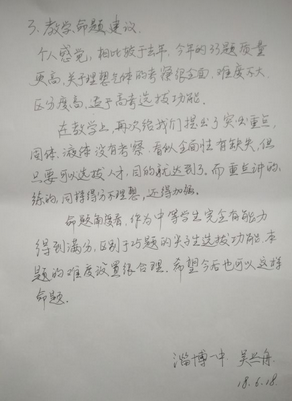 3、教学命题建议
个人感觉,相比较于去年,今年的33题质量
更高,关于理想气体的考察很全面,难度不大,
区分度高,适于高考选拔功能。
在教学上,再次给我们提出了突出重点,
固体、液体没有考察,看似全面性有缺失,但
只要可以选拔人才,目的就达到了。而重点讲的
练的,同样得分不理想,还得加强。
命题角度看,作为中等学生完全有能力
得到满分,区别于巧题的尖子生选拔功能,本
题的难度设置很合理。希望今后也可以这样
命题。
淄博一中 吴
18.6.18